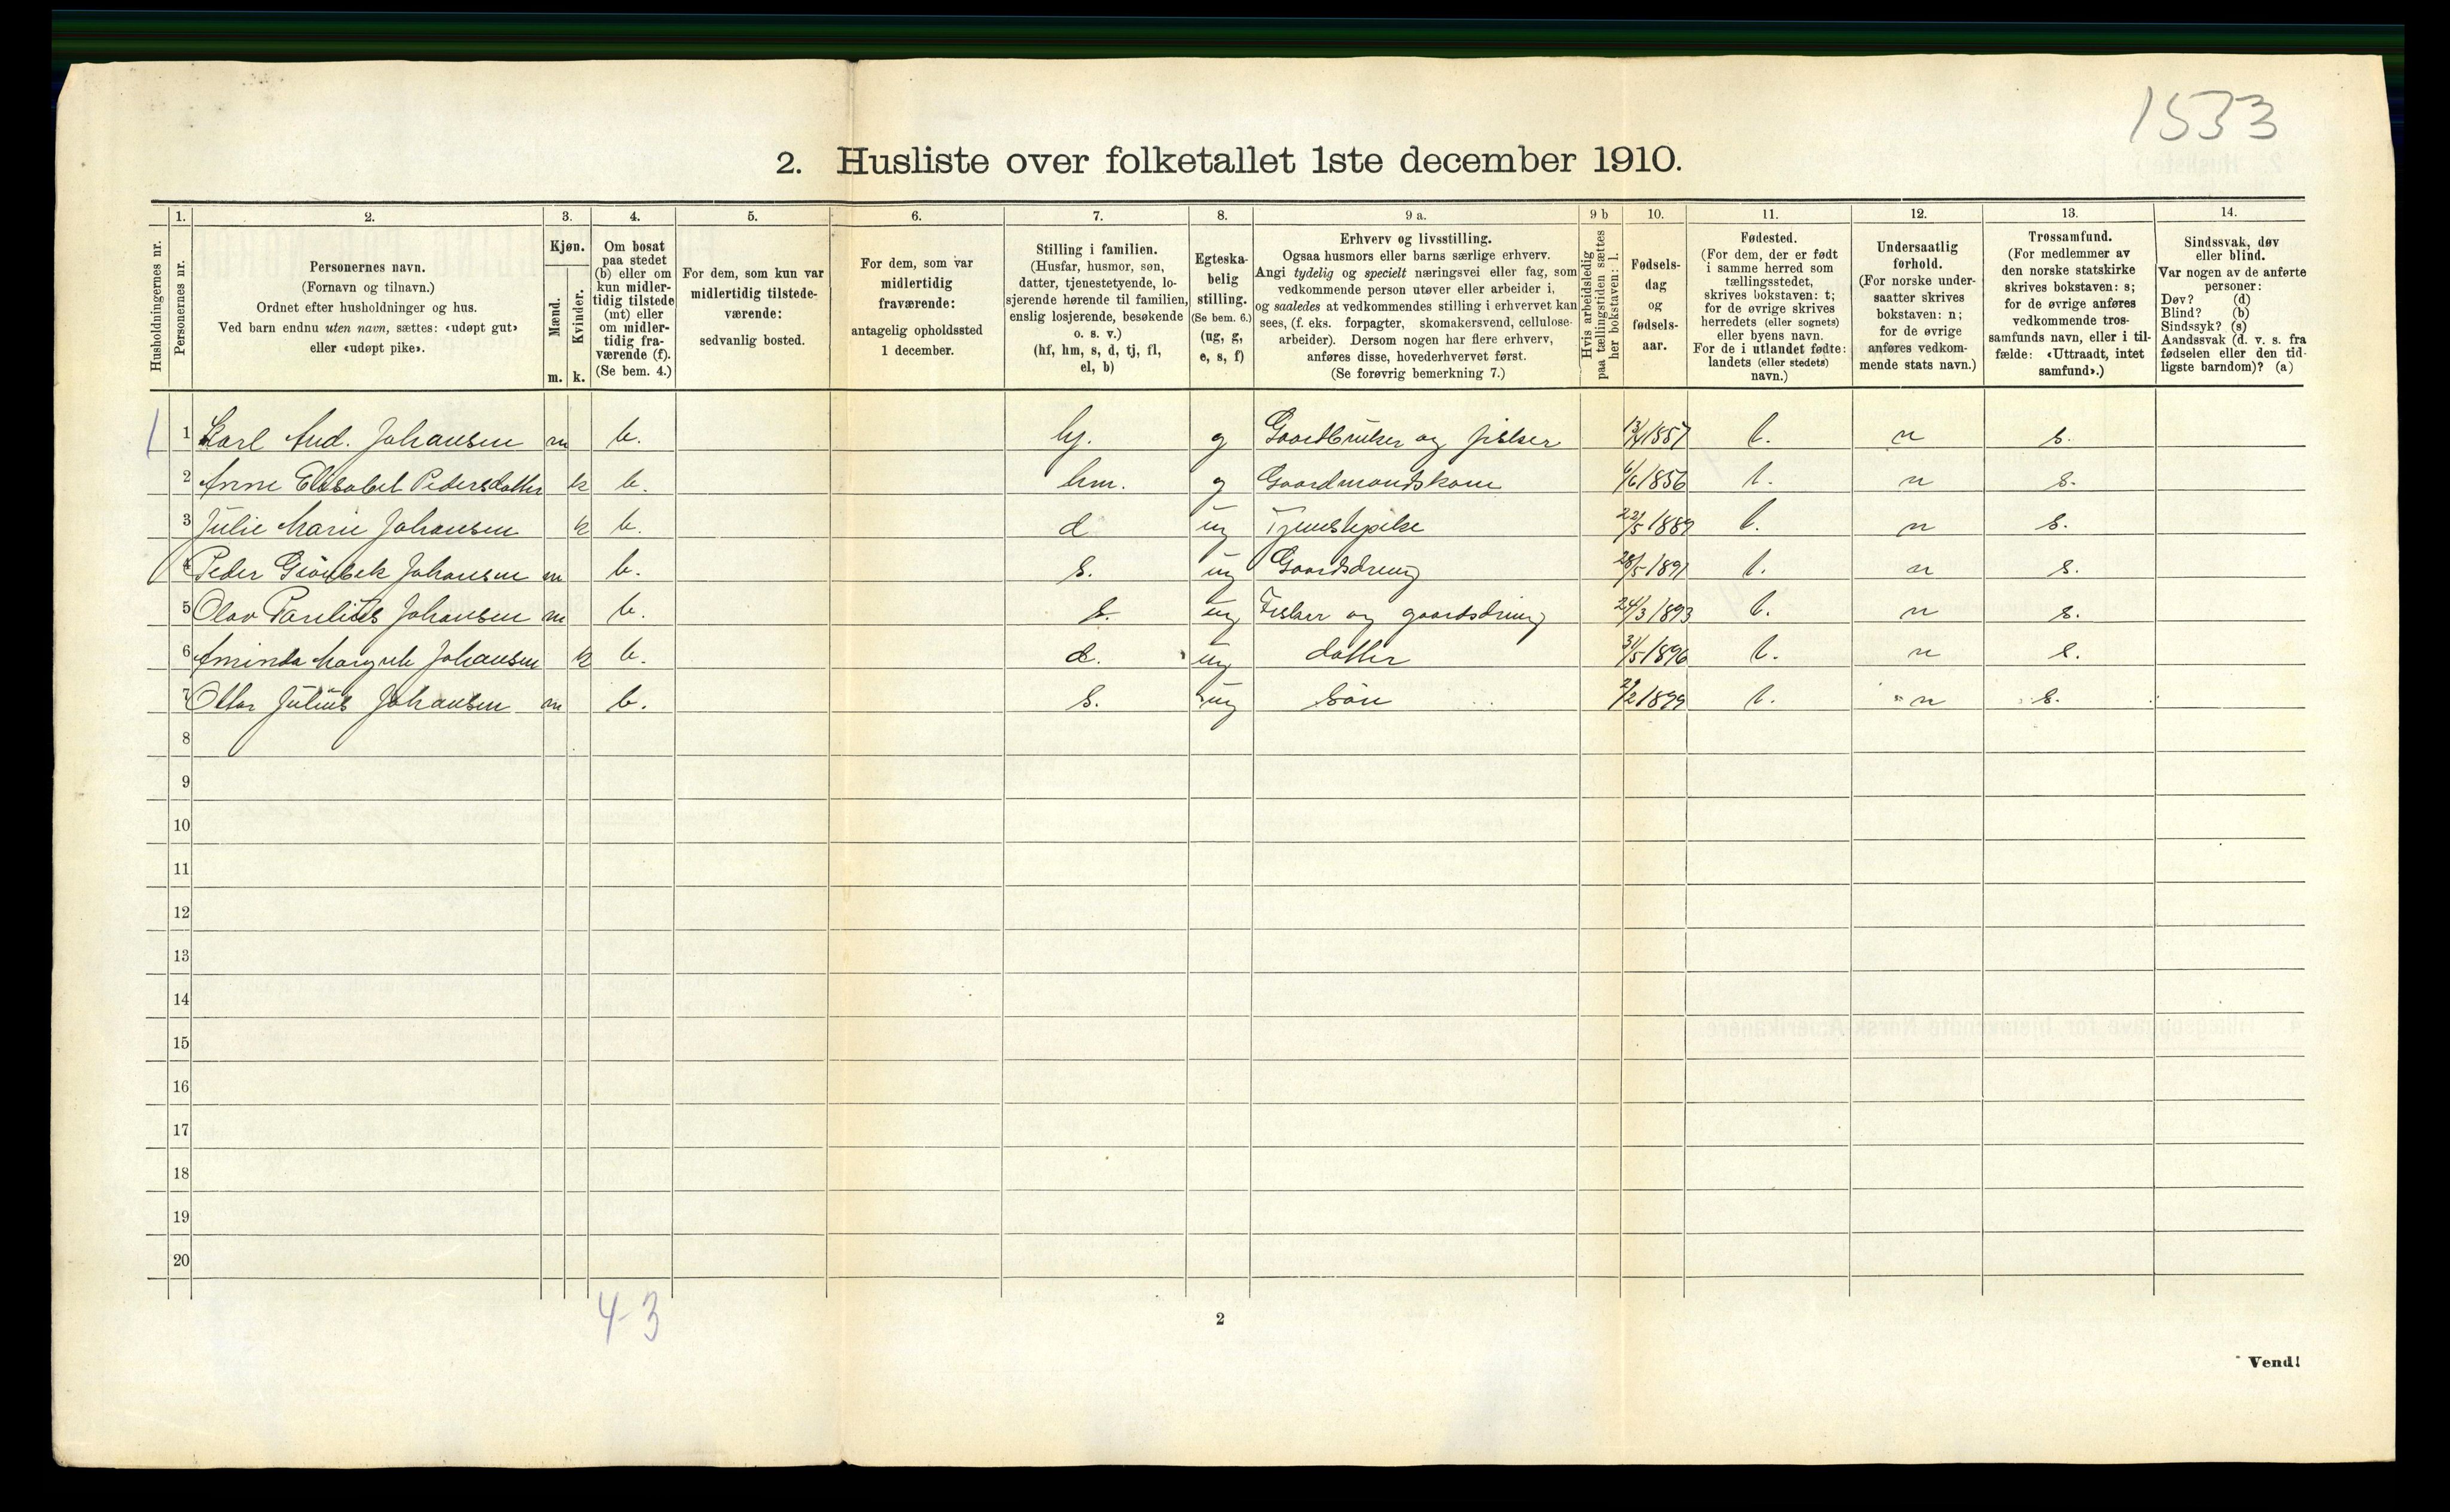 1533
2. Husliste over folketallet 1ste december 1910.
Husholdningernes nr.
1. Personernes nr.
2. Personernes navn. (Fornavn og tilnavn.) Ordnet efter husholdninger og hus. Ved barn endnu uten navn, sættes: «udøpt gut» eller «udøpt pike».
3. Kjøn. Mænd. m. Kvinder. k.
4. Om bosat paa stedet (b) eller om kun midler-tidig tilstede (mt) eller om midler-tidig fra-værende (f). (Se bem. 4.)
5. For dem, som kun var midlertidig tilstede-værende: sedvanlig bosted.
6. For dem, som var midlertidig fraværende: antagelig opholdssted 1 december.
7. Stilling i familien. (Husfar, husmor, søn, datter, tjenestetyende, lo-sjerende hørende til familien, enslig losjerende, besøkende o. s. v.) (hf, hm, s, d, tj, fl, el, b)
8. Egteska-belig stilling. (Se bem. 6.) (ug, g, e, s, f)
9 a. Erhverv og livsstilling. Ogsaa husmors eller barns særlige erhverv. Angi tydelig og specielt næringsvei eller fag, som vedkommende person utøver eller arbeider i, og saaledes at vedkommendes stilling i erhvervet kan sees, (f. eks. forpagter, skomakersvend, cellulose-arbeider). Dersom nogen har flere erhverv, anføres disse, hovederhvervet først. (Se forøvrig bemerkning 7.)
9 b Hvis arbeidsledig paa tællingstiden sættes her bokstaven: l.
10. Fødsels-dag og fødsels-aar.
11. Fødested. (For dem, der er født i samme herred som tællingsstedet, skrives bokstaven: t; for de øvrige skrives herredets (eller sognets) eller byens navn. For de i utlandet fødte: landets (eller stedets) navn.)
12. Undersaatlig forhold. (For norske under-saatter skrives bokstaven: n; for de øvrige anføres vedkom-mende stats navn.)
13. Trossamfund. (For medlemmer av den norske statskirke skrives bokstaven: s; for de øvrige anføres vedkommende tros-samfunds navn, eller i til-fælde: «Uttraadt, intet samfund».)
14. Sindssvak, døv eller blind. Var nogen av de anførte personer: Døv? (d) Blind? (b) Sindssyk? (s) Aandssvak (d. v. s. fra fødselen eller den tid-ligste barndom)? (a)
1 Karl And. Johansen m b. hf. g Gaardbruker og fisker 1857 t. n s.
2 Anne Elisabet Pedersdatter k b. hm. g Gaardmandskone 6/6 1856 t. n s.
3 Julie Marie Johansen k b. d ug Tjenestepike 22/5 1889 t. n s.
4 Peder Grönbek Johansen m b. s. ug Gaardsdreng 28/5 1891 t. n s.
5 Olav Paulius Johansen m b. s. ug Fisker og gaardsdreng 24/3 1893 t. n s.
6 Aminda Margrete Johansen k b. d. ug datter 31/5 1896 t. n s.
7 Ottar Julius Johansen m b. s. ug Sön 2/2 1899 t. n s.
8
9
10
11
12
13
14
15
16
17
18
19
20
4-3
2
Vend!